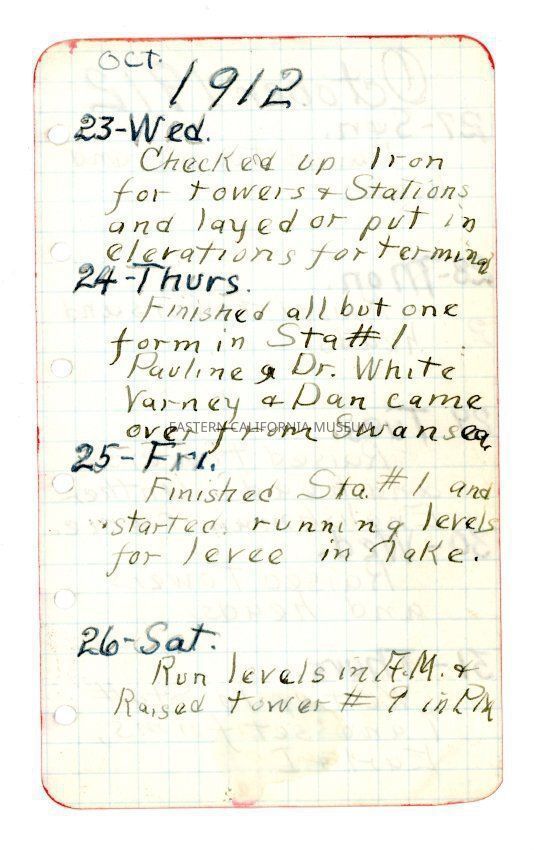 Oct.
1912
23-Wed.
Checked up Iron
for towers & Stations
and layed or put in
elevations for terminal
24-Thurs.
Finished all but one
form in Sta #1
Pauline & Dr. White
Varney & Dan came
over from Swansea
EASTERN CALIFORNIA MUSEUM
25-Fri.
Finished Sta. #1 and
started running levels
for levee in lake.
26-Sat.
Run levels in A.M. &
Raised tower # 9 in P.M.